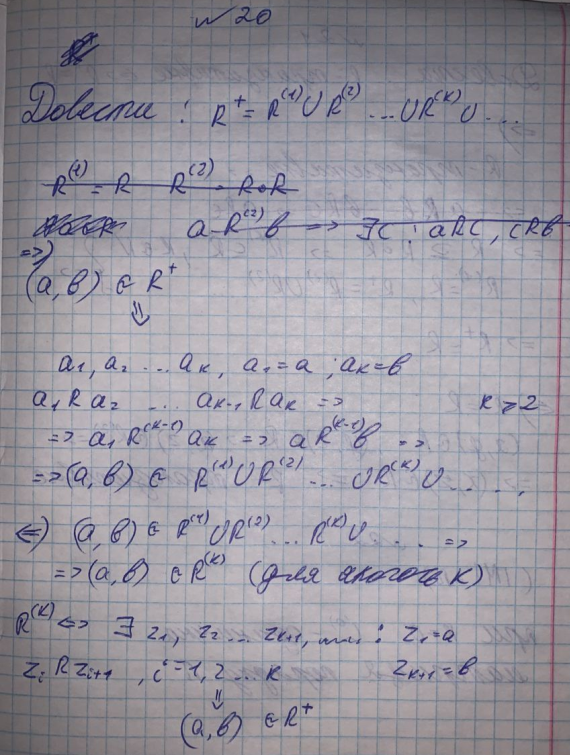 № 20
Довести : R⁺ = R⁽¹⁾ U R⁽²⁾ ... U R⁽ᴷ⁾ U ...
R⁽¹⁾ = R R⁽²⁾ = R∘R
a R⁽²⁾ b => ∃c : aRc, cRb
=>)
(a, b) ∈ R⁺
⇓
a₁, a₂ ... aₖ, a₁ = a ; aₖ = b
a₁ R a₂ ... aₖ₋₁ R aₖ => k ≥ 2
=> a₁ R⁽ᴷ⁻¹⁾ aₖ => a R⁽ᴷ⁻¹⁾ b =>
=> (a, b) ∈ R⁽¹⁾ U R⁽²⁾ ... U R⁽ᴷ⁾ U ....
<=) (a, b) ∈ R⁽¹⁾ U R⁽²⁾ ... R⁽ᴷ⁾ U .... =>
=> (a, b) ∈ R⁽ᴷ⁾ (для якогось K)
R⁽ᴷ⁾ <=> ∃ z₁, z₂ ... zₖ₊₁, : z₁ = a
zᵢ R zᵢ₊₁ , i = 1, 2 ... k zₖ₊₁ = b
⇓
(a, b) ∈ R⁺